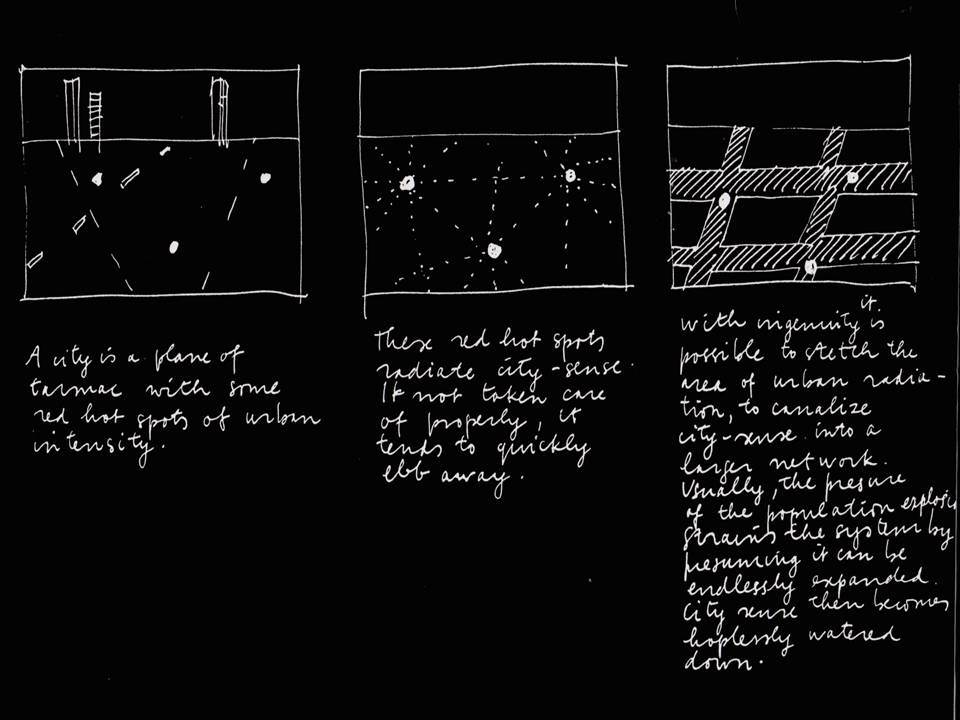 A city is a plane of
tarmac with some
red hot spots of urban
intensity.
These red hot spots
radiate city-sense.
If not taken care
of properly, it
tends to quickly
ebb away.
With ingenuity it is
possible to stretch the
area of urban radia-
tion, to canalize
city-sense into a
larger network.
Usually, the presure
of the population explosio
strains the system by
presuming it can be
endlessly expanded.
City sense then becomes
hoplessly watered
down.